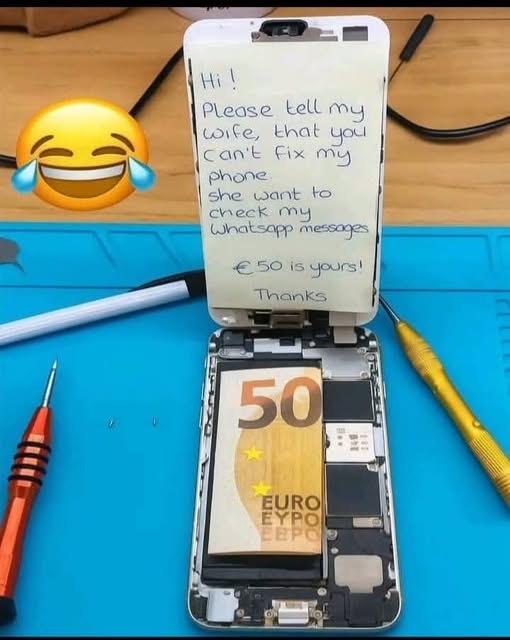 Hi !
Please tell my
wife, that you
can't fix my
phone.
she want to
check my
Whatsapp messages
€50 is yours!
Thanks
50
EURO
EYPO
EBPO